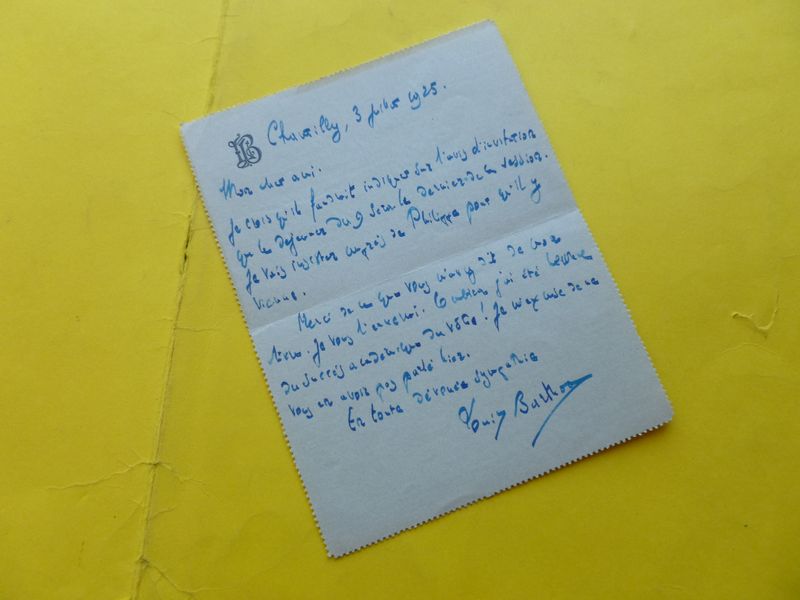 LB
Chantilly, 3 juillet 1925.
Mon cher ami.
Je crois qu'il faudrait indiquer sur l'avis d'invitation
que le déjeuner du 9 sera le dernier de la session.
Je vais insister auprès de Philippe pour qu'il y
vienne.
Merci de ce que vous m'avez dit de mon
livre. Je vous l'enverrai. Combien j'ai été heureux
du succès académique du vôtre! Je m'excuse de ne
vous en avoir pas parlé hier.
En toute dévouée sympathie
Louis Barthou